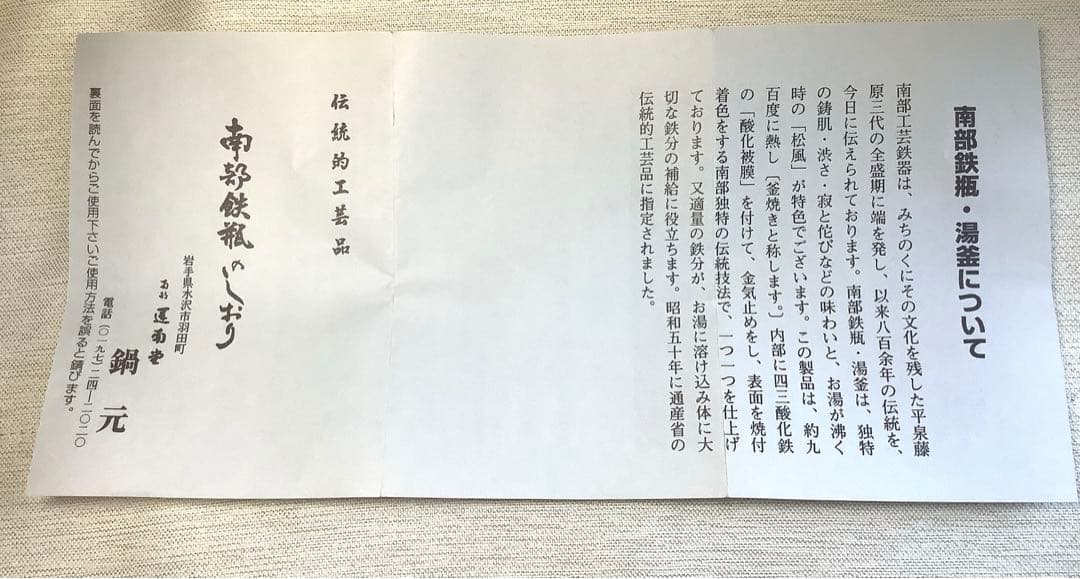 南部鉄瓶・湯釜について
南部工芸鉄器は、みちのくにその文化を残した平泉藤
原三代の全盛期に端を発し、以来八百余年の伝統を、
今日に伝えられております。南部鉄瓶・湯釜は、独特
の鋳肌・渋さ・寂と侘びなどの味わいと、お湯が沸く
時の「松風」が特色でございます。この製品は、約九
百度に熱し〔釜焼きと称します。〕内部に四三酸化鉄
の「酸化被膜」を付けて、金気止めをし、表面を焼付
着色をする南部独特の伝統技法で、一つ一つを仕上げ
ております。又適量の鉄分が、お湯に溶け込み体に大
切な鉄分の補給に役立ちます。昭和五十年に通産省の
伝統的工芸品に指定されました。
伝統的工芸品
南部鉄瓶のしおり
岩手県水沢市羽田町
鍋元
電話(〇一九七)二四―二〇二〇
裏面を読んでからご使用下さいご使用方法を誤ると錆びます。